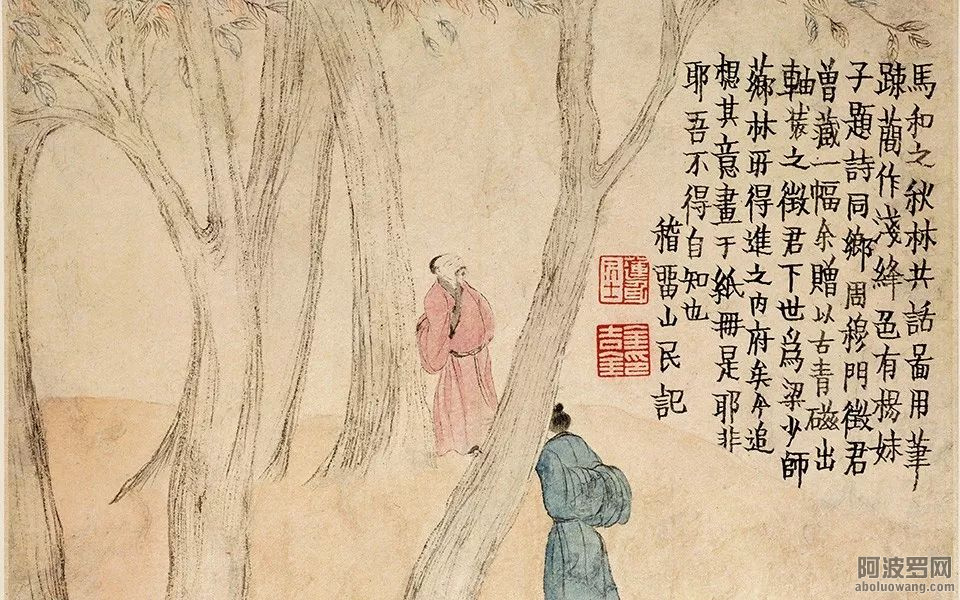 馬和之秋林共話啚用筆
踈蕳作淺絳色有楊妹
子題詩同鄉周穆門徵君
曾藏一幅余贈以古青磁出
軸裝之徵君下世爲梁少師
薌林所得進之内府矣今追
想其意畫于紙冊是耶非
耶吾不得自知也
稽畱山民記
蓮身居士
金吉金印
阿波罗网
aboluowang.com